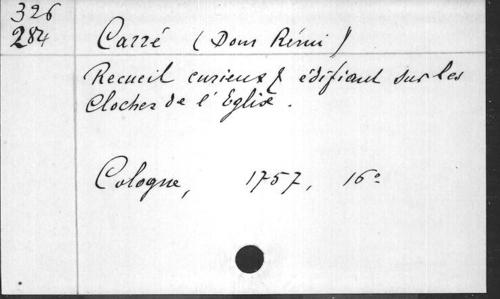 326
284
Carré (Dom Rémi)
Recueil curieux & édifiant sur les
Cloches de l'Eglise.
Cologne, 1757, 16°